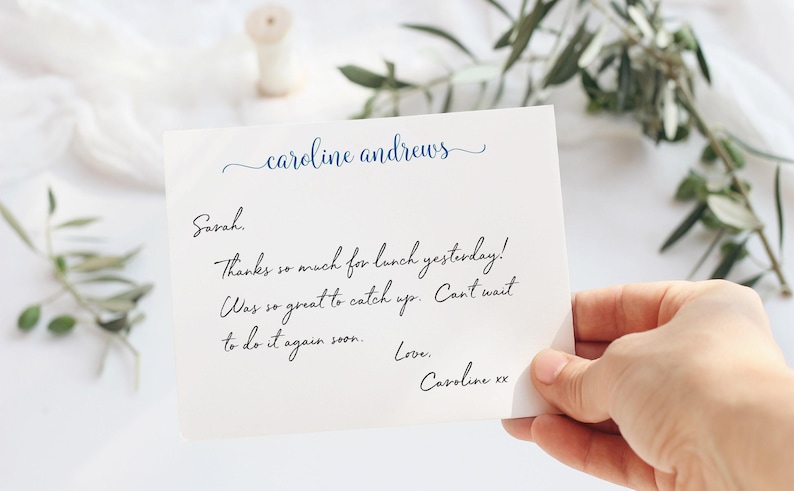 caroline andrews
Sarah,
Thanks so much for lunch yesterday!
Was so great to catch up. Can't wait
to do it again soon.
Love,
Caroline xx